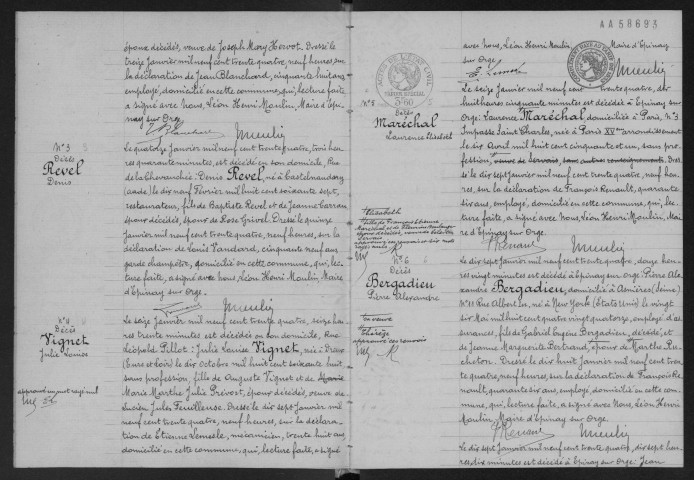 époux décédés, veuve de Joseph Mary Hervot. Dressé le
treize Janvier mil neuf cent trente quatre, neuf heures, sur
la déclaration de Jean Blanchard, cinquante huit ans
employé, domicilié en cette commune, qui, lecture faite
a signé avec nous, Léon Henri Moulin, Maire d'Epi-
nay sur Orge.
N° 3
Décès
Revel
Denis
Le quatorze Janvier mil neuf cent trente quatre, trois heu-
res quarante minutes, est décédé en son domicile, Rue
de la Chevauchée: Denis Revel, né à Castelnaudary
(aude) le dix neuf Février mil huit cent soixante sept,
restaurateur, fils de Baptiste Revel et de Jeanne Carrau
époux décédés, époux de Rose Grivel. Dressé le quinze
Janvier mil neuf cent trente quatre, neuf heures, sur la
déclaration de Louis Vauclard, cinquante neuf ans
garde champêtre, domicilié en cette commune, qui, lec-
ture faite, a signé avec nous, Léon Henri Moulin Maire
d'Epinay sur Orge.
N° 4
Décès
Vignet
Julie Louise
Le seize Janvier mil neuf cent trente quatre, seize heu-
res trente minutes est décédée en son domicile, Rue
Léopold Pillot: Julie Louise Vignet, née à Dreux
(Eure et Loir) le dix Octobre mil huit cent soixante huit,
sans profession, fille de Auguste Vignet et de
Marie Marthe Julie Prévost, époux décédés, veuve de
Lucien Jules Feuilleuse. Dressé le dix sept Janvier mil
neuf cent trente quatre, neuf heures, sur la déclara-
tion de Etienne Lemesle, mécanicien, trente huit ans,
domicilié en cette commune, qui, lecture faite, a signé
approuvé un mot rayé nul
AA58693
avec nous, Léon Henri Moulin, Maire d'Epinay
sur Orge.
TIMBRE SPÉCIAL
3f60
N° 5
Décès
Maréchal
Laurence Elisabeth
Le seize Janvier mil neuf cent trente quatre, dix
huit heures cinquante minutes est décédée à Epinay sur
Orge: Laurence Maréchal, domiciliée à Paris, N° 3
Impasse Saint Charles, née à Paris XVme arrondissement
le dix Avril mil huit cent cinquante et un, sans pro-
fession, veuve de Servais, sans autres renseignements. Dres-
sé le dix sept Janvier mil neuf cent trente quatre, neuf heu-
res, sur la déclaration de François Renault, quarante
six ans, employé, domicilié en cette commune, qui, lec-
ture faite, a signé avec Nous, Léon Henri Moulin, Mai
re d'Epinay sur Orge.
Elisabeth
N° 6
Décès
Bergadieu
Pierre Alexandre
Le dix sept Janvier mil neuf cent trente quatre, douze heu-
res vingt minutes est décédé à Epinay sur Orge: Pierre Ale-
xandre Bergadieu, domicilié à Asnières (Seine)
né à New York (Etats Unis) le vingt
six Mai mil huit cent quatre vingt quatorze, employé d'as-
surances, fils de Gabriel Eugène Bergadieu, décédé, et
de Jeanne Marguerite Bertrand, époux de Marthe Ru-
cheton. Dressé le dix huit Janvier mil neuf cent tren
te quatre, neuf heures, sur la déclaration de François Re-
nault, quarante six ans, employé, domicilié en cette com-
mune, qui, lecture faite, a signé avec Nous, Léon Henri
Moulin Maire d'Epinay sur Orge.
sa veuve
Le dix sept Janvier mil neuf cent trente quatre, dix sept heu-
res, dix minutes est décédé à Epinay sur Orge: Jean